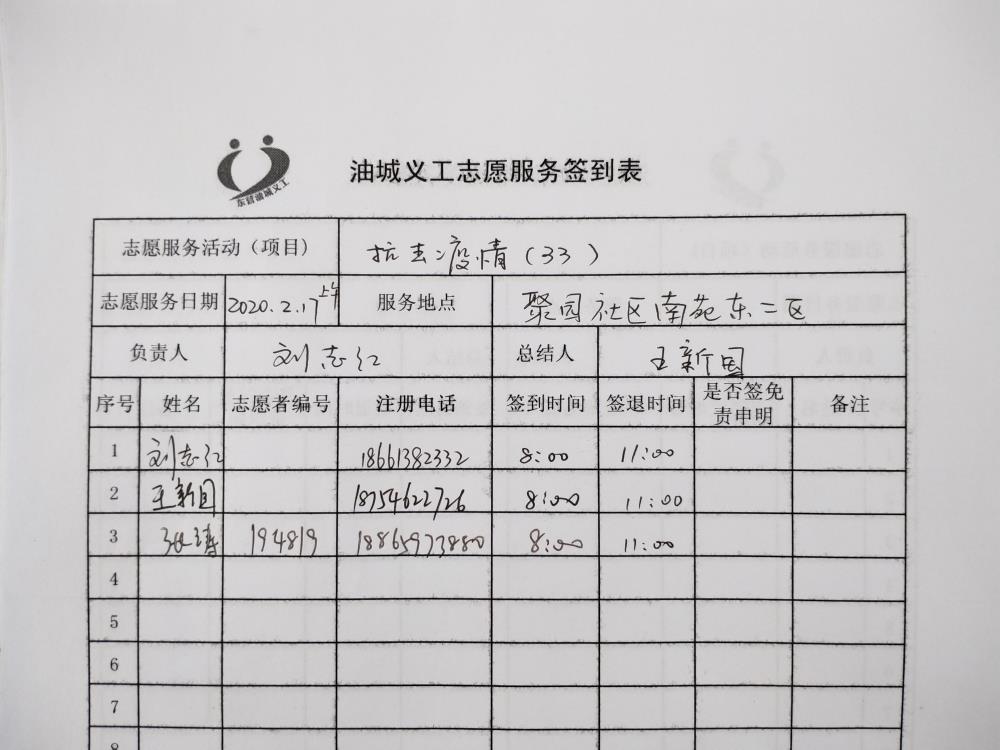 东营油城义工
油城义工志愿服务签到表
志愿服务活动（项目） 抗击疫情（33）
志愿服务日期 2020.2.17上午 服务地点 聚园社区南苑东二区
负责人 刘志红 总结人 王新国
序号 姓名 志愿者编号 注册电话 签到时间 签退时间 是否签免责申明 备注
1 刘志红 18661382332 8:00 11:00
2 王新国 18754622726 8:00 11:00
3 194819 18865973880 8:00 11:00
4
5
6
7
8